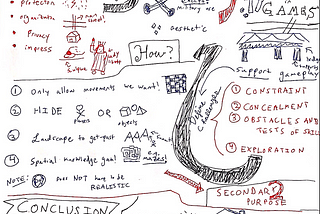 protection
organization
Privacy
impress
military are
aesthetic
GAMES
How?
support
gameplay
① Only allow movements we want!
② HIDE
OR
players
objects
③ Landscape to get-past
④ Spatial knowledge gain!
e.g. mazes!
NOTE:
Does NOT have to be
REALISTIC
Define
challenges
① CONSTRAINT
② CONCEALMENT
③ OBSTACLES AND
TESTS OF SKILL
④ EXPLORATION
SECONDARY
PURPOSE
CONCLUSION